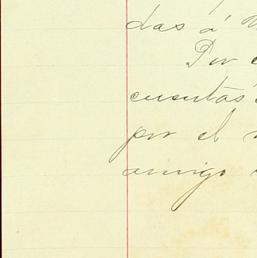 das á
Por
cuentas
por el
amigo